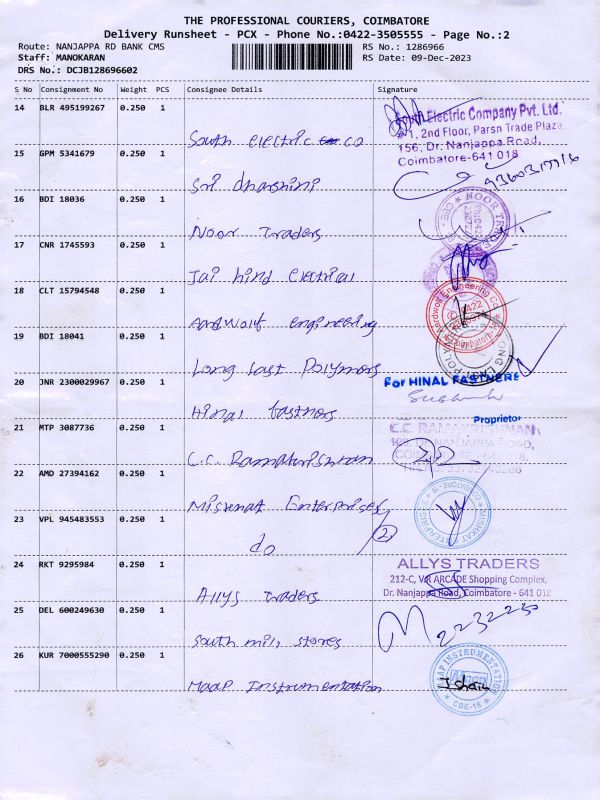 THE PROFESSIONAL COURIERS, COIMBATORE
Delivery Runsheet - PCX - Phone No.:0422-3505555 - Page No.:2
Route: NANJAPPA RD BANK CMS
RS No.: 1286966
Staff: MANOKARAN
RS Date: 09-Dec-2023
DRS No.: DCJB128696602
S No Consignment No Weight PCS Consignee Details Signature
14 BLR 495199267 0.250 1
South Electric Company Pvt. Ltd.
#1, 2nd Floor, Parsn Trade Plaza,
156, Dr. Nanjappa Road,
Coimbatore-641 018
South electric co
15 GPM 5341679 0.250 1
Sri dharshini
16 BDI 18036 0.250 1
NOOR TRADERS
Noor Traders
17 CNR 1745593 0.250 1
Jai hind electrical
18 CLT 15794548 0.250 1
Aardwolf Engineering
Coimbatore
Aardwolf engineering
19 BDI 18041 0.250 1
LONG LAST POLYM
Long last Polymers
20 JNR 2300029967 0.250 1
For HINAL FASTNERS
Proprietor
Hinal fastners
21 MTP 3087736 0.250 1
C.C. RAMAKRISHNAN
NANJAPPA ROAD,
22 AMD 27394162 0.250 1
Mishkat Enterprises
23 VPL 945483553 0.250 1
MISHKAT ENTERPRISES
do (2)
24 RKT 9295984 0.250 1
ALLYS TRADERS
212-C, V.R ARCADE Shopping Complex,
Dr. Nanjappa Road, Coimbatore - 641 018.
Allys Traders
25 DEL 600249630 0.250 1
South mill stores
26 KUR 7000555290 0.250 1
AP INSTRUMENTATION
CBE-18
Maap Instrumentation